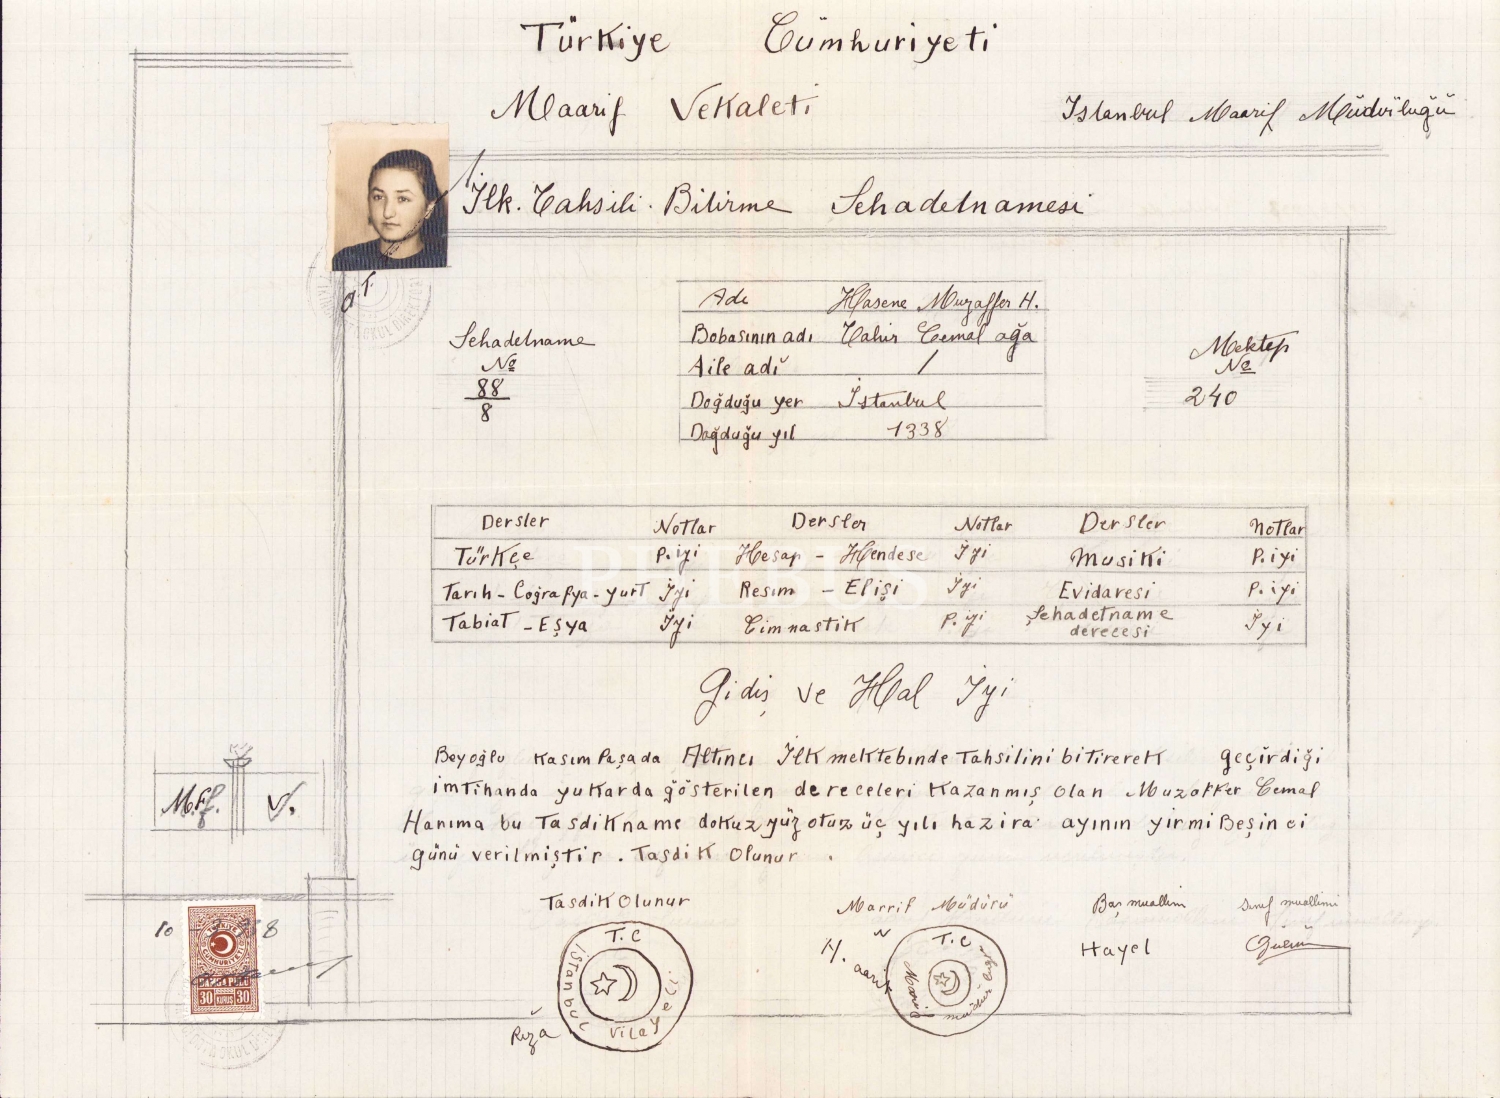 Türkiye Cümhuriyeti
Maarif Vekaleti
İstanbul Maarif Müdürlüğü
İlk. Tahsili. Bitirme Şehadetnamesi
Adı Hasene Muzaffer H.
Bobasının adı Tahir Cemal ağa
Aile adı /
Doğduğu yer İstanbul
Doğduğu yıl 1338
Şehadetname
№
88
8
Mektep
№
240
Dersler Notlar Dersler Notlar Dersler Notlar
Türkçe P.iyi Hesap - Hendese İyi Musiki P.iyi
Tarıh - Coğrafya - yurt İyi Resım - Elişi İyi Evidaresi P.iyi
Tabiat - Eşya İyi Cimnastik P.iyi Şehadetname derecesi İyi
Gidiş ve Hal İyi
Beyoğlu Kasım Paşada Altıncı İlk mektebınde Tahsilini bitirerek geçirdiği
imtihanda yukarda gösterilen dereceleri Kazanmış olan Muzaffer Cemal
Hanıma bu Tasdikname dokuz yüz otuz üç yılı hazira ayının yirmi Beşinci
günü verilmiştir. Tasdik Olunur.
M.F.f. V.
Tasdik Olunur
T.C
İstanbul Vilayeti
Rıza
Marrif Müdürü
T.C
Maarif
Baş muallim
Hayel
Sınıf muallimi
10 8
TÜRKİYE CUMHURİYETİ
DAMGA PULU
30 KURUŞ 30
PHEBUS